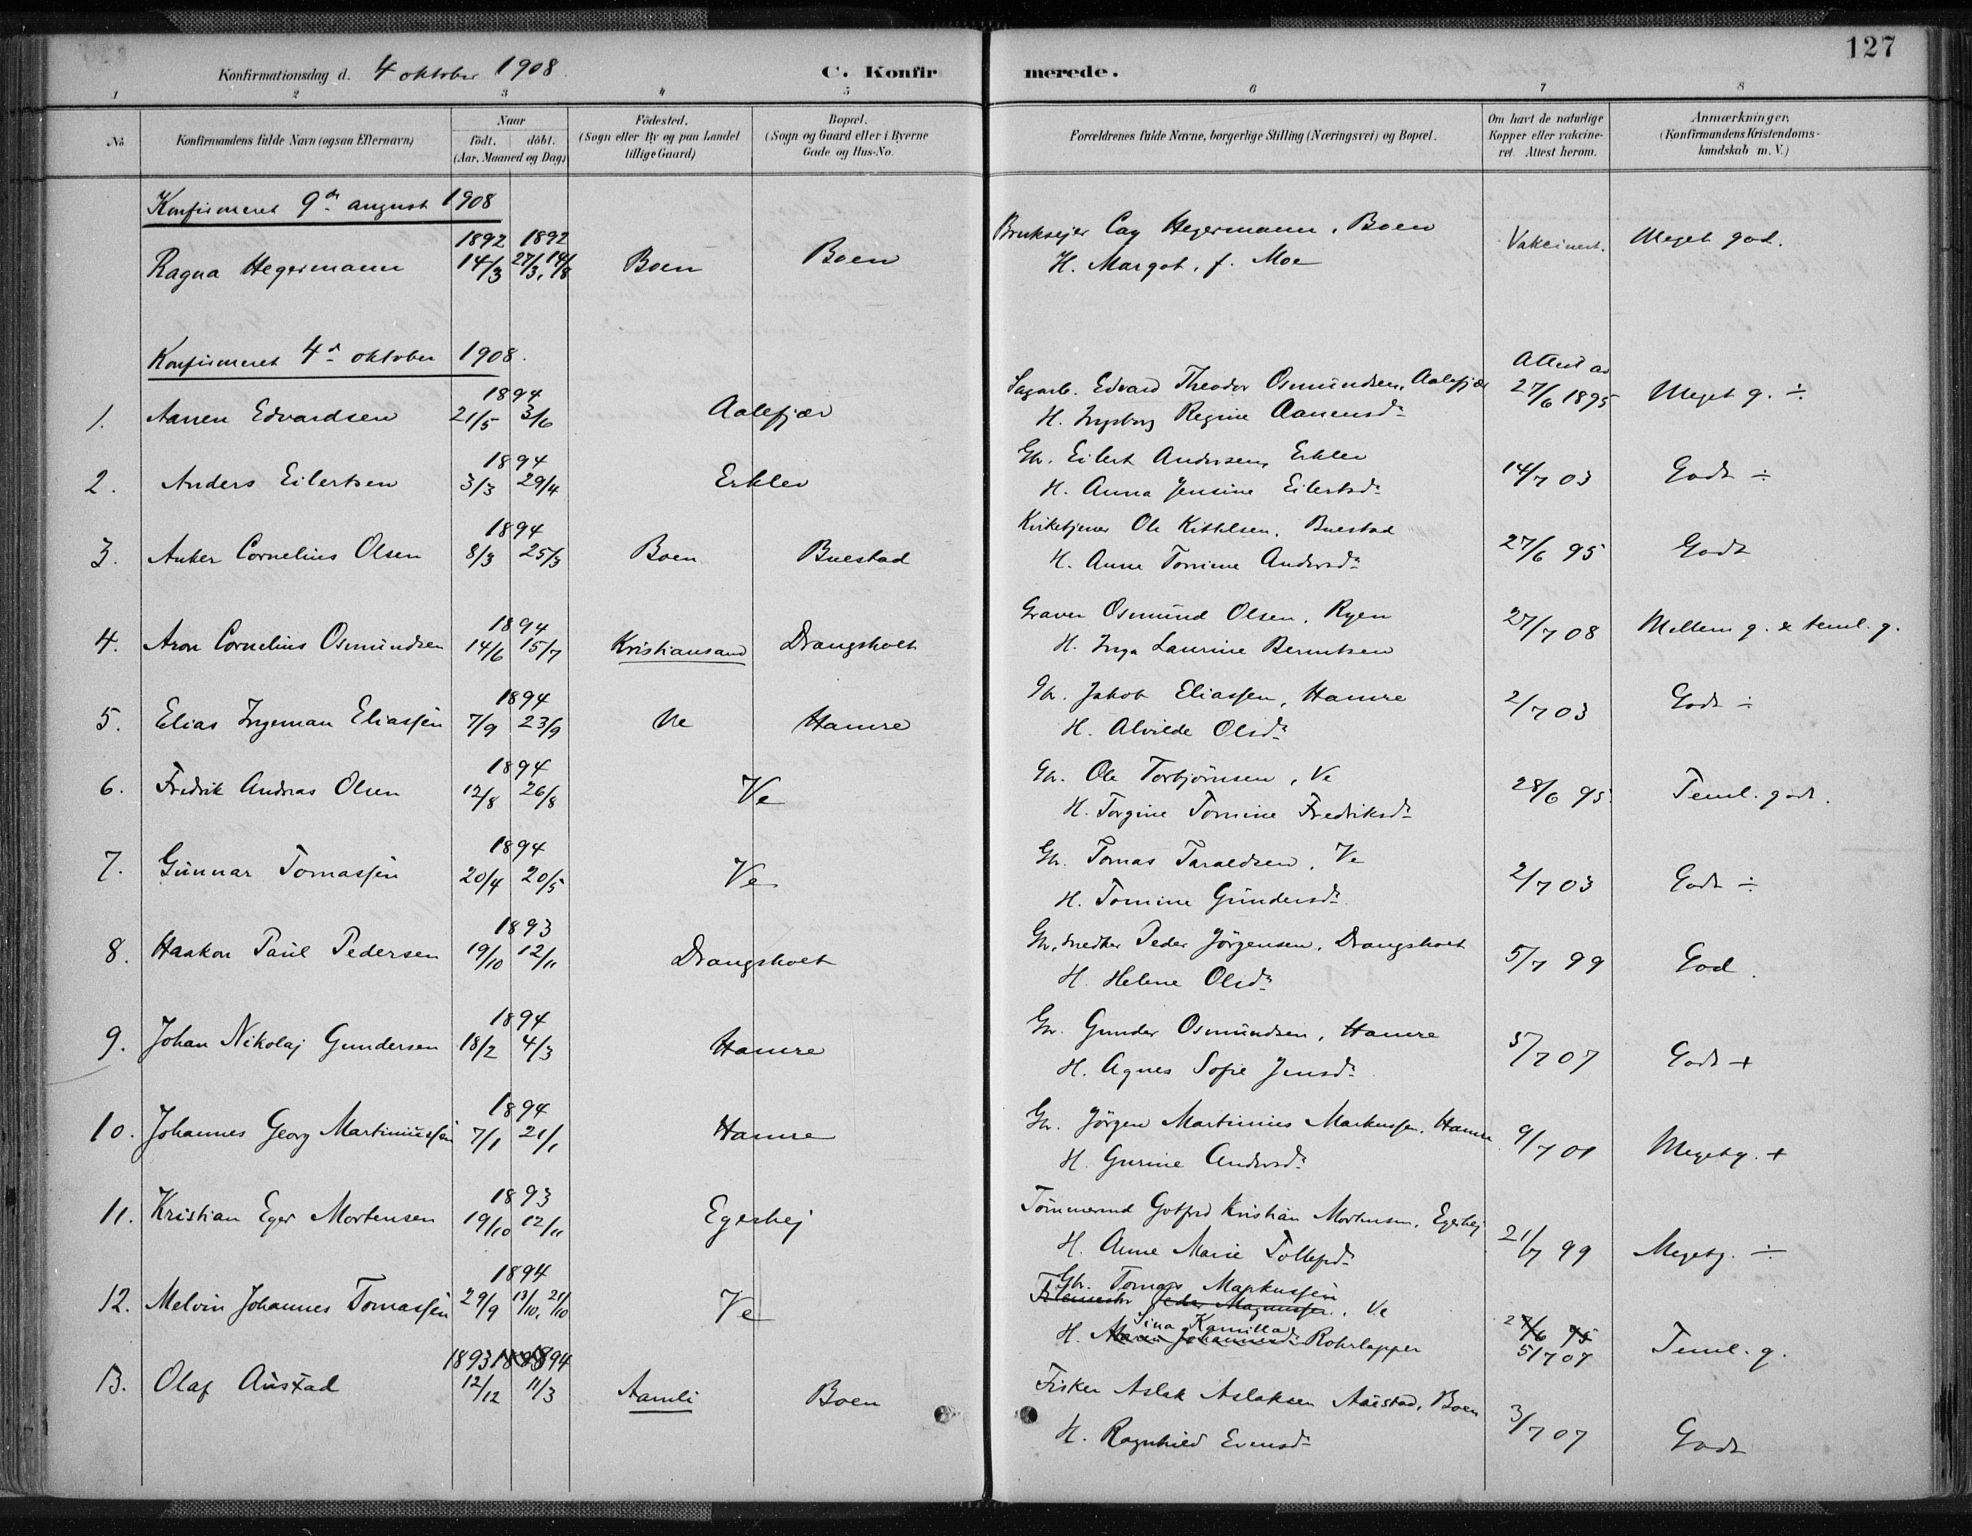 127
Konfirmationsdag d. 4 oktober 1908.
C. Konfirmerede.
1 2 3 4 5 6 7 8
No.
Konfirmandens fulde Navn (ogsaa Efternavn)
Naar
födt. döbt.
(Aar, Maaned og Dag)
Födested.
(Sogn eller By og paa Landet
tillige Gaard)
Bopæl.
(Sogn og Gaard eller i Byerne
Gade og Hus-No.
Forældrenes fulde Navne, borgerlige Stilling (Næringsvei) og Bopæl.
Om havt de naturlige
Kopper eller vakcine-
ret. Attest herom.
Anmærkninger,
(Konfirmandens Kristendoms-
kundskab m. V.)
Konfirmeret 9de august 1908
1892 1892
Ragna Hegermann 14/3 27/3, 14/8 Boen Boen
Bruksejer Cay Hegermann, Boen
H. Margot, f. Moe
Vakcinert. Meget god.
Konfirmeret 4de oktober 1908.
1894
1. Aanen Edvardsen 21/5 3/6 Aalefjær
Sagarb. Edvard Theodor Osmundsen, Aalefjær
H. Ingeborg Regine Aanensdr
Attest av
27/6 1895 Meget g. ÷
1894
2. Anders Eilertsen 3/3 29/4 Erklev
Gbr. Eilert Andersen, Erklev
H. Anna Jensine Eilertsdr
14/7 03 Godt ÷
1894
3. Anker Cornelius Olsen 8/3 25/3 Boen Buestad
Kirketjener Ole Kittelsen, Buestad
H. Anne Tomine Andersdr
27/6 95 Godt
1894
4. Aron Cornelius Osmundsen 14/6 15/7 Kristiansand Drangsholt
Graver Osmund Olsen, Ryen
H. Inga Laurine Berntsen
27/7 08 Mellem g. x teml. g.
1894
5. Elias Ingeman Eliassen 7/9 23/9 Ve Hamre
Gbr. Jakob Eliassen, Hamre
H. Alvilde Olsdr
2/7 03 Godt ÷
1894
6. Fredrik Andreas Olsen 12/8 26/8 Ve
Gbr. Ole Torbjörnsen, Ve
H. Torgine Tomine Fredriksdr
28/6 95. Teml. godt.
1894
7. Gunnar Tomassen 20/4 20/5 Ve
Gbr. Tomas Taraldsen, Ve
H. Tomine Gundersdr
2/7 03 Godt ÷
1893
8. Haakon Paul Pedersen 19/10 12/11 Drangsholt
Gbr, snedker Peder Jörgensen, Drangsholt
H. Helene Olsdr
5/7 99 God.
1894
9. Johan Nikolaj Gundersen 18/2 4/3 Hamre
Gbr. Gunder Osmundsen, Hamre
H. Agnes Sofie Jensdr
5/7 07 Godt +
1894
10. Johannes Georg Martiniussen 7/1 21/1 Hamre
Gbr. Jörgen Martinius Markussen, Hamre
H. Gurine Andersdr
9/7 01 Meget g. +
1893
11. Kristian Eger Mortensen 19/10 12/11 Egeshej
Tömmermd Gotfred Kristian Mortensen, Egeshej
H. Anne Marie Tollefsdr
21/7 99 Meget g. ÷
1894
12. Melvin Johannes Tomassen 29/9 13/10, 21/10 Ve
Gbr. Tomas Markussen
Peder Magnussen, Ve
Sina Kamilla
H. Maria Johannesdr Rohrlapper
27/6 95
5/7 07 Teml. g.
1893 1894
13. Olaf Austad 12/12 11/3 Aamli Boen
Fisker Aslak Aslaksen Austad, Boen
H. Ragnhild Evensdr
3/7 07 Godt